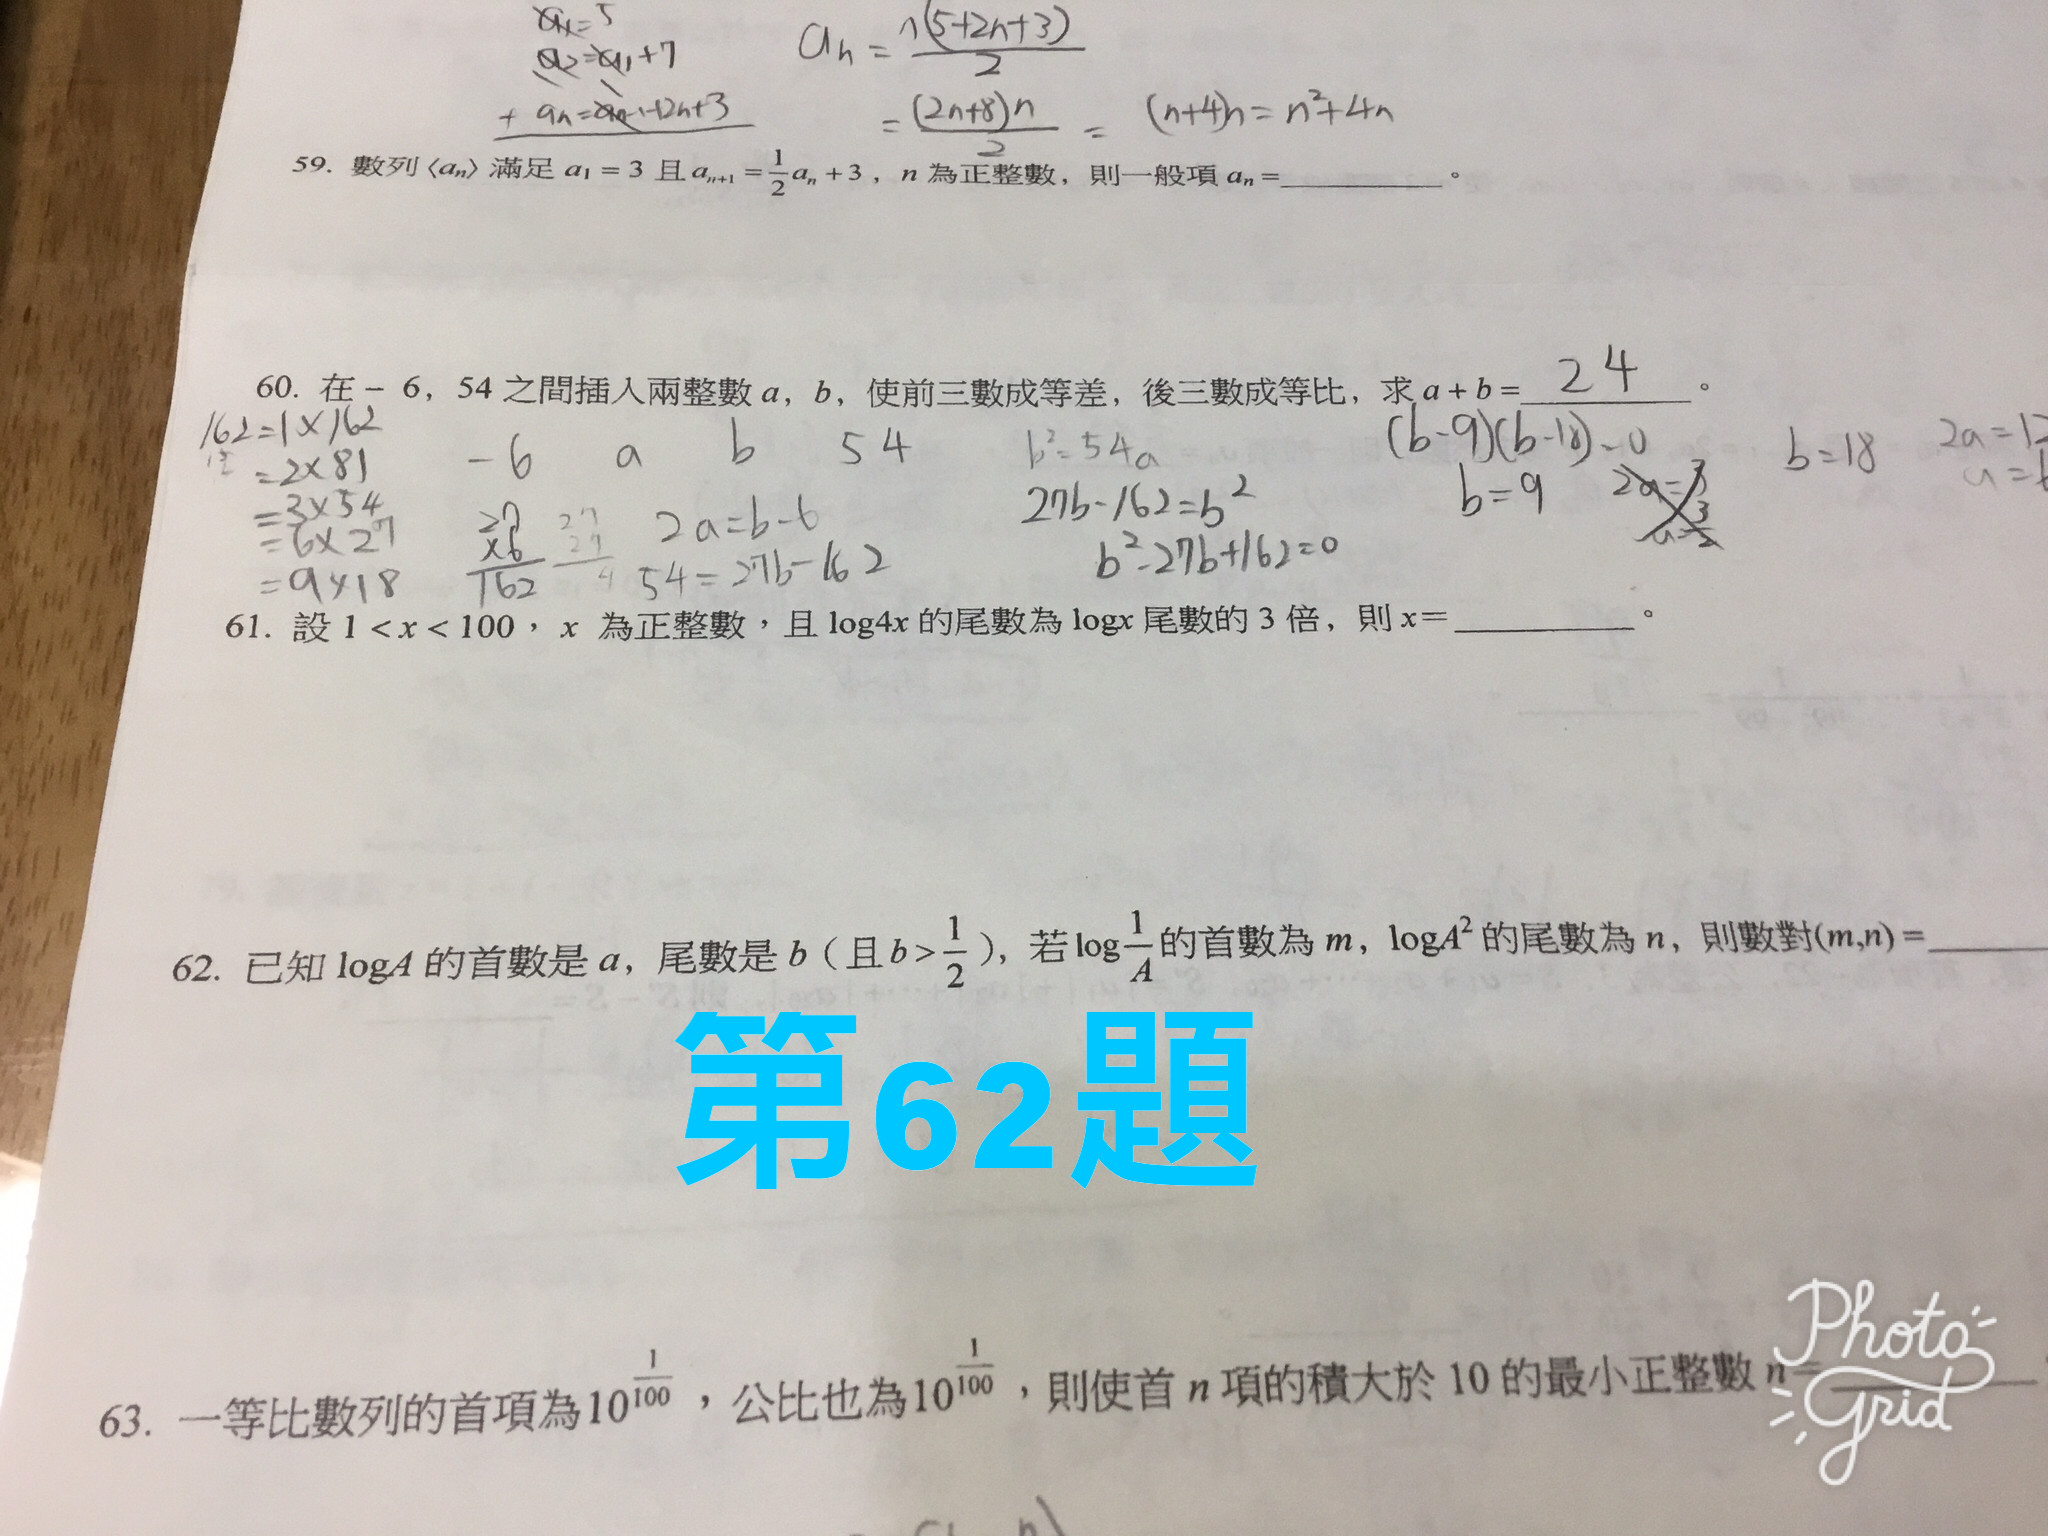 a₁=5
a₂=a₁+7
+ aₙ=aₙ₋₁+2n+3
aₙ = n(5+2n+3)/2
= (2n+8)n/2 = (n+4)n = n²+4n
59. 數列⟨aₙ⟩滿足 a₁ = 3 且 aₙ₊₁ = 1/2 aₙ + 3，n 為正整數，則一般項 aₙ =__________。
60. 在 – 6，54 之間插入兩整數 a，b，使前三數成等差，後三數成等比，求 a + b = 24 。
162=1×162
=2×81
=3×54
=6×27
=9×18
-6 a b 54
27
×6
162
27
4
2a=b-6
54=27b-162
b²=54a
27b-162=b²
b²-27b+162=0
(b-9)(b-18)=0
b=9 2a=3
b=18 2a=12
61. 設 1 < x < 100，x 為正整數，且 log4x 的尾數為 logx 尾數的 3 倍，則 x=__________。
62. 已知 logA 的首數是 a，尾數是 b（且 b > 1/2），若 log 1/A 的首數為 m，logA² 的尾數為 n，則數對(m,n) =______
第62題
63. 一等比數列的首項為10^(1/100)，公比也為10^(1/100)，則使首 n 項的積大於 10 的最小正整數 n =__________
Photo
Grid